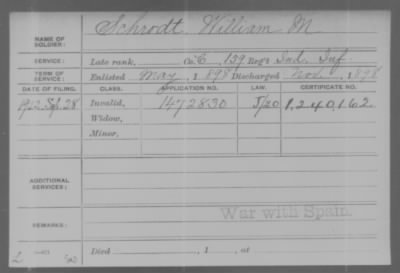 NAME OF SOLDIER: Schrodt, William M
SERVICE: Late rank, Co. C, 159 Reg't Ind. Inf
TERM OF SERVICE: Enlisted May, 1898 Discharged Nov., 1898
DATE OF FILING. CLASS. APPLICATION NO. LAW. CERTIFICATE NO.
1922 Sep. 28 Invalid, 1472830 J/20 1,240,162
Widow,
Minor,
ADDITIONAL SERVICES:
War with Spain.
REMARKS:
Died , 1 , at